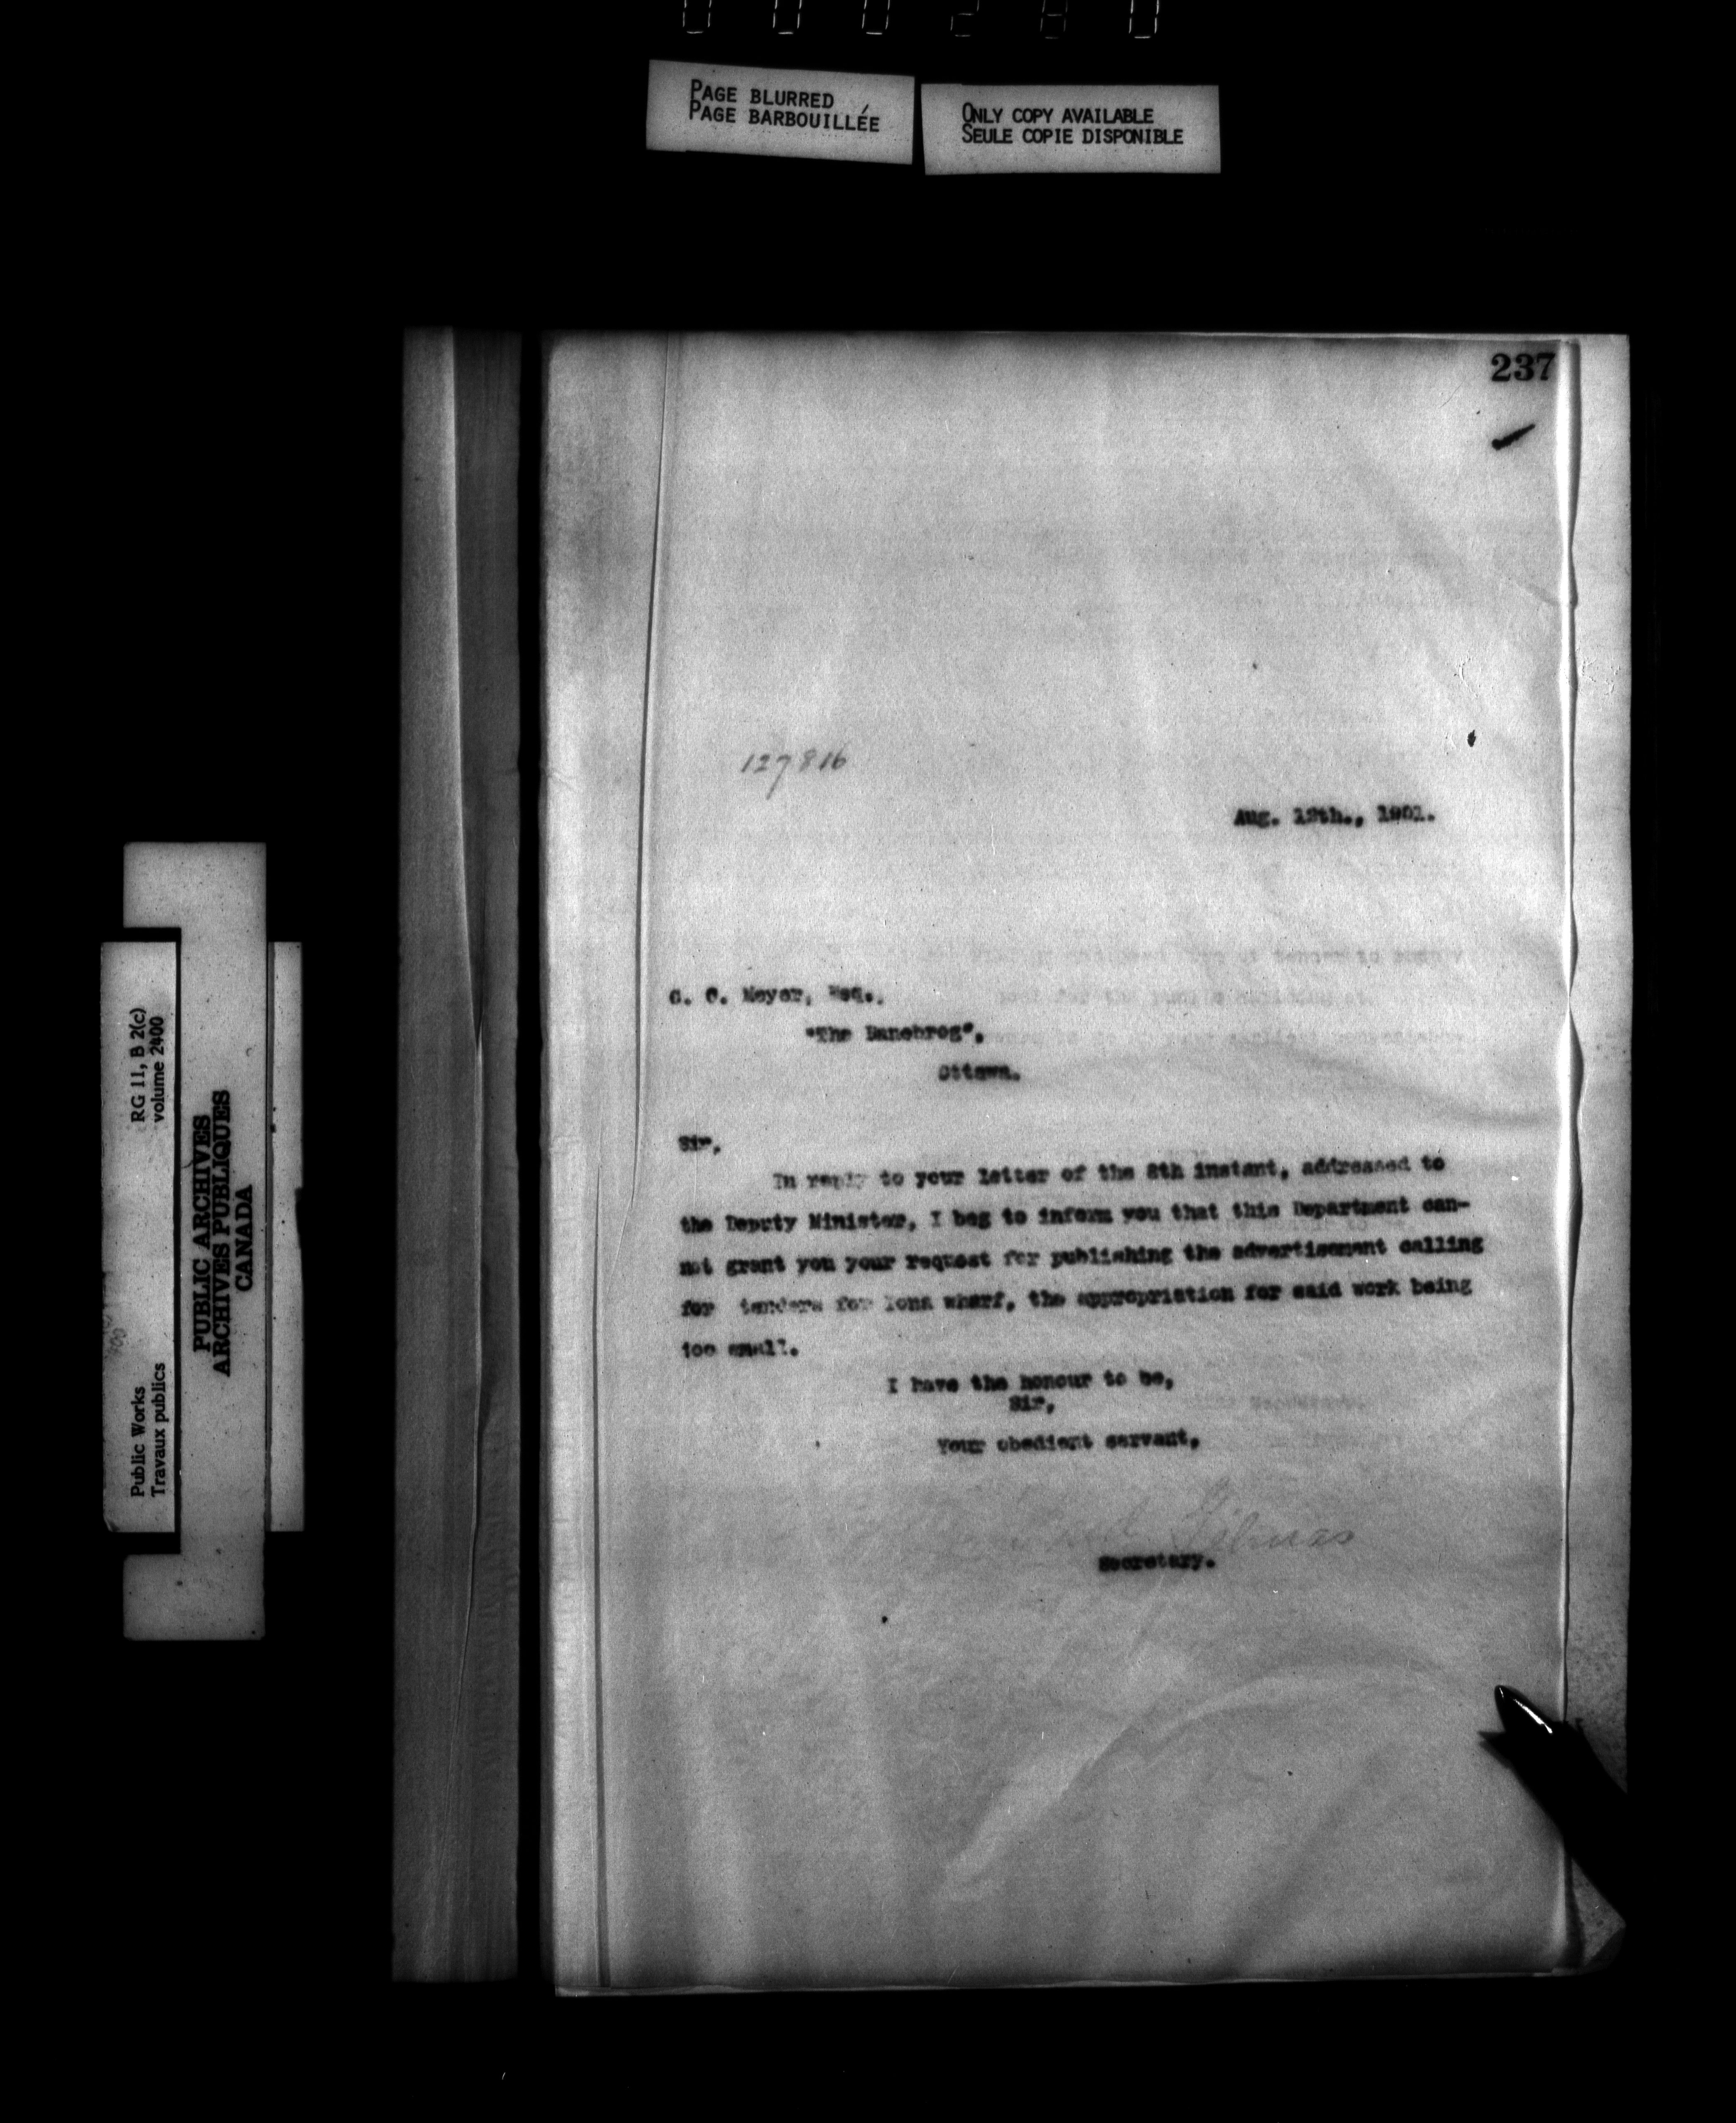 000280
PAGE BLURRED
PAGE BARBOUILLÉE
ONLY COPY AVAILABLE
SEULE COPIE DISPONIBLE
237
127816
Aug. 12th., 1901.
C. C. Meyer, Esq.,
"The Danebrog",
Ottawa.
Sir,
In reply to your letter of the 8th instant, addressed to
the Deputy Minister, I beg to inform you that this Department can-
not grant you your request for publishing the advertisement calling
for tenders for Iona wharf, the appropriation for said work being
too small.
I have the honour to be,
Sir,
Your obedient servant,
Secretary.
RG 11, B 2(c)
volume 2400
Public Works
Travaux publics
PUBLIC ARCHIVES
ARCHIVES PUBLIQUES
CANADA